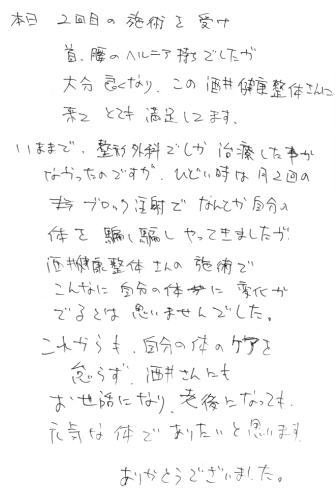 本日 2回目の施術を受け
首、腰のヘルニア持ちでしたが
大分良くなり、この酒井健康整体さんに
来て とても 満足してます。
いままで、整形外科でしか 治療した事が
なかったのですが、ひどい時は月2回の
ブロック注射で なんとか自分の
体を 騙し騙し やって生ましたが
酒井健康整体さんの施術で
こんなに 自分の体に 変化が
でるとは 思いませんでした。
これからも、自分の体のケアを
怠らず、酒井さんにも
お世話になり、老後になっても、
元気な体でありたいと思います
ありがとうございました。